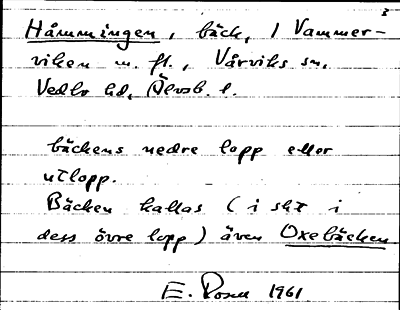 Håmmingen, bäck, i Vammer-
viken m. fl., Vårviks sn,
Vedbo hd, Älvsb. l.
bäckens nedre lopp eller
utlopp.
Bäcken kallas (i sht i
dess övre lopp) även Oxebäcken
E. Rosell 1961